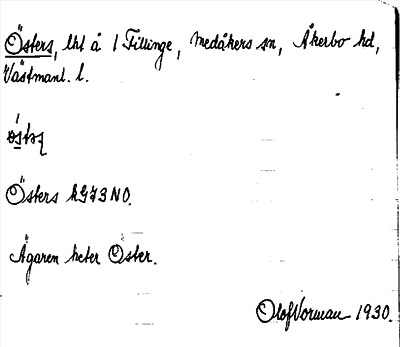 Östers, lht å 1 Fillinge, Medåkers sn, Åkerbo hd,
Västmanl. l.
Östers kG73NO.
Ägaren heter Öster.
Olof Vorman 1930.